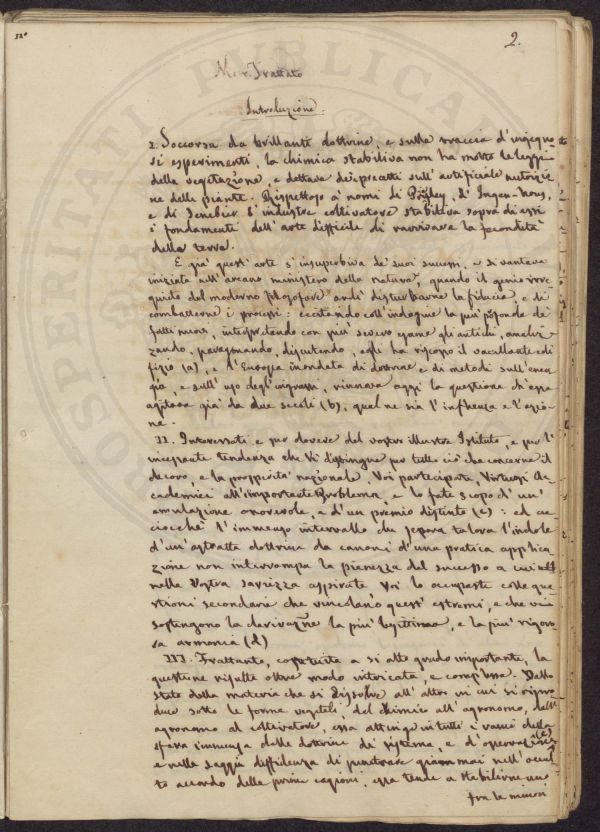 2.
Trattato
Introduzione.
I. Soccorsa da brillanti dottrine, e sulla traccia d'ingegno-
si esperimenti, la chimica stabiliva non ha molto le leggi
della vegetazione, e dettava dei precetti sull'artificiale nutrizio-
ne delle piante. Rispettoso a' nomi di d' Ingen-Hous,
e di Senebier l'industre coltivatore stabiliva sopra di essi
i fondamenti dell'arte difficile di ravvivare la fecondità
della terra.
E già quest'arte s'insuperbiva de' suoi successi, e si vantava
iniziata nell'arcano ministero della natura, quando il genio irre-
quieto del moderno filosofare ardì disturbarne la fiducia, e di
combatterne i processi: eccitando coll'indagine la più profonda de'
fatti nuovi, interpretando con più severo esame gli antichi, analiz-
zando, paragonando, discutendo, egli ha scosso il vacillante edi-
fizio (a), e l'Europa inondata di dottrine e di metodi sull'
e sull'uso degl'ingrassi, rinnova oggi la questione ch'era
agitata già da due secoli (b), qual ne sia l'influenza e l'azio-
ne.
II. Interessati e per dovere del vostro illustre Istituto, e per l'
incessante tendenza che Vi distingue per tutto ciò che concerne il
decoro, e la prosperità nazionale, Voi partecipate, Virtuosi Ac-
cademici all'importante Problema, e lo fate scopo d'un'
emulazione onorevole, e d'un premio distinto (c): ed ac-
ciocchè l'immenso intervallo che separa talora l'indole
d'un'astratta dottrina da' canoni d'una pratica applica-
zione non interrompa la pienezza del successo a cui
nella Vostra saviezza aspirate Voi lo occupaste colle que-
stioni secondarie che vincolano questi estremi, e che ne
sostengono la derivazione la più legittima, e la più rigoro-
sa armonia (d)
III. Frattanto, costituita a sì alto grado importante, la
questione risulta oltre modo intricata, e complessa. Dallo
stato della materia che si dissolve all'altro in cui si ripro-
duce sotto le forme vegetali, dal chimico all'agronomo, dall'
agronomo al coltivatore, essa attinge in tutti i della
sfera immensa delle dottrine di sistema, e d'osservazione,
e nella saggia diffidenza di penetrare giammai nell'occul-
to accordo delle prime cagioni, essa tende a stabilirne uno
fra le minori